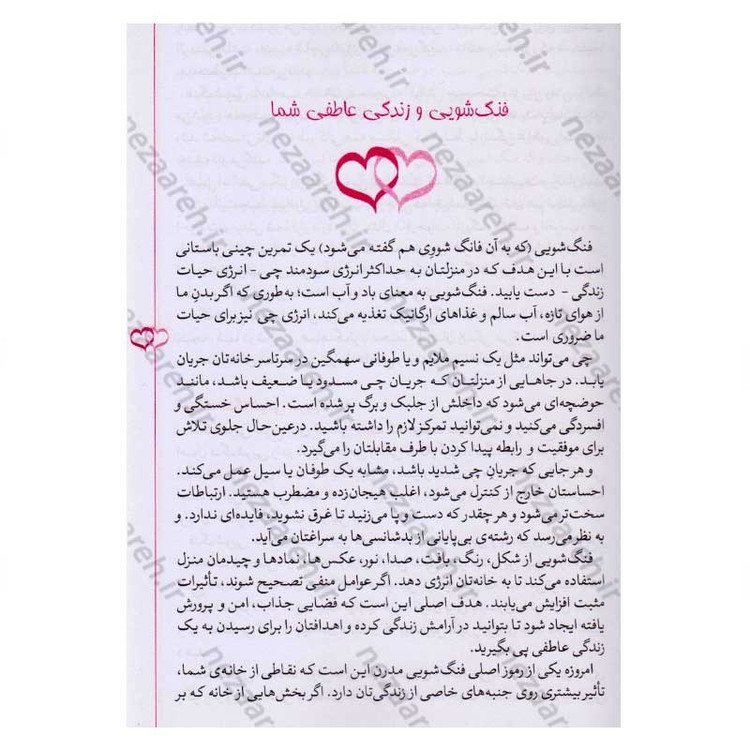 فنگ‌شویی و زندگی عاطفی شما
فنگ‌شویی (که به آن فانگ شووی هم گفته می‌شود) یک تمرین چینی باستانی
است با این هدف که در منزلتان به حداکثر انرژی سودمند چی - انرژی حیات
زندگی - دست یابید. فنگ‌شویی به معنای باد و آب است؛ به‌طوری که اگر بدنِ ما
از هوای تازه، آب سالم و غذاهای ارگانیک تغذیه می‌کند، انرژی چی نیز برای حیات
ما ضروری است.
چی می‌تواند مثل یک نسیم ملایم و یا طوفانی سهمگین در سرتاسر خانه‌تان جریان
یابد. در جاهایی از منزلتان که جریان چی مسدود یا ضعیف باشد، مانند
حوضچه‌ای می‌شود که داخلش از جلبک و برگ پر شده است. احساس خستگی و
افسردگی می‌کنید و نمی‌توانید تمرکز لازم را داشته باشید. درعین‌حال جلوی تلاش
برای موفقیت و رابطه پیدا کردن با طرف مقابلتان را می‌گیرد.
و هر جایی که جریانِ چی شدید باشد، مشابه یک طوفان یا سیل عمل می‌کند.
احساستان خارج از کنترل می‌شود، اغلب هیجان‌زده و مضطرب هستید. ارتباطات
سخت‌تر می‌شود و هر چقدر که دست و پا می‌زنید تا غرق نشوید، فایده‌ای ندارد. و
به نظر می‌رسد که رشته‌ی بی‌پایانی از بدشانسی‌ها به سراغتان می‌آید.
فنگ‌شویی از شکل، رنگ، بافت، صدا، نور، عکس‌ها، نمادها و چیدمان منزل
استفاده می‌کند تا به خانه‌تان انرژی دهد. اگر عوامل منفی تصحیح شوند، تأثیرات
مثبت افزایش می‌یابند. هدف اصلی این است که فضایی جذاب، امن و پرورش
یافته ایجاد شود تا بتوانید در آرامش زندگی کرده و اهدافتان را برای رسیدن به یک
زندگی عاطفی پی بگیرید.
امروزه یکی از رموز اصلی فنگ‌شویی مدرن این است که نقاطی از خانه‌ی شما،
تأثیر بیشتری روی جنبه‌های خاصی از زندگی‌تان دارد. اگر بخش‌هایی از خانه که بر
nezaareh.ir